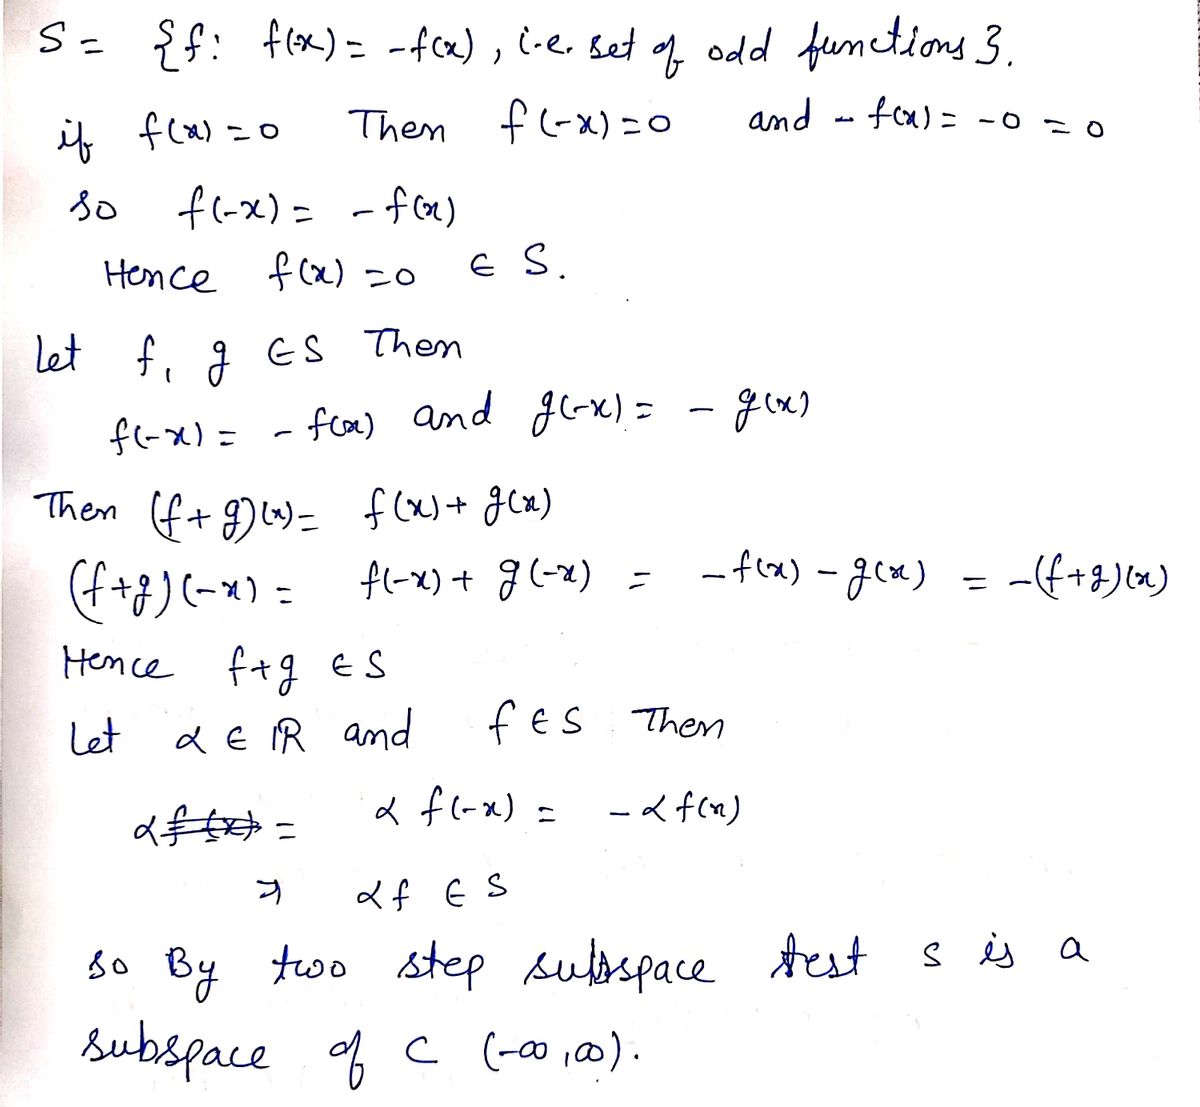 S = {f: f(-x) = -f(x), i.e. set of odd functions}.
if f(x) = 0 Then f(-x) = 0 and - f(x) = -0 = 0
so f(-x) = - f(x)
Hence f(x) = 0 ∈ S.
Let f, g ∈ S Then
f(-x) = - f(x) and g(-x) = - g(x)
Then (f+g)(x) = f(x) + g(x)
(f+g)(-x) = f(-x) + g(-x) = -f(x) - g(x) = -(f+g)(x)
Hence f+g ∈ S
Let α ∈ ℝ and f ∈ S Then
α f(x) = α f(-x) = - α f(x)
⇒ αf ∈ S
so By two step subspace test s is a
subspace of C (-∞,∞).